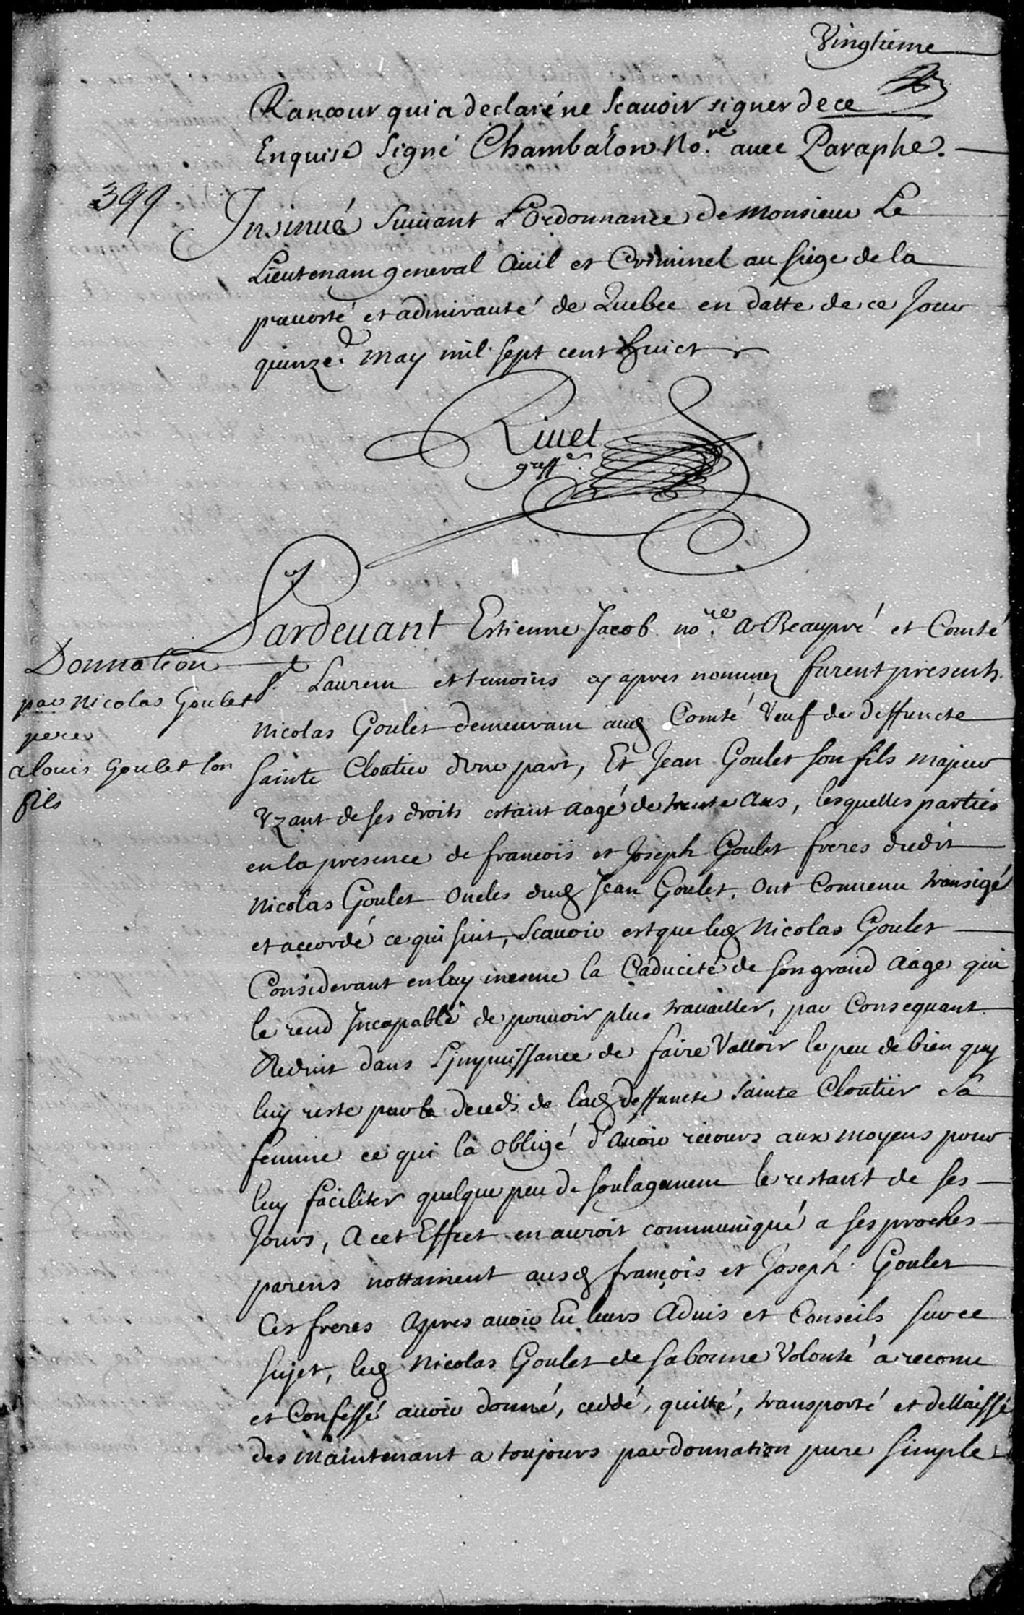 Vingtieme
Rancœur qui a declaré ne Scauoir signer de ce
Enquise Signé Chambalon No.re auec Paraphe.
399
Insinué Suiuant L'Ordonnance de Monsieur Le
Lieutenant general Ciuil et Criminel au siege de la
preuosté et admirauté de Quebec en datte de ce Jour
quinze.e May mil sept cent huict
Riuet
greff.er
Donnation
par Nicolas Goulet
pere
a louis Goulet son
fils
Pardeuant Estienne Jacob no.re a Beaupré et Comté
st. Laurent et temoins cy apres nommez furent presents
Nicolas Goulet demeurant aud Comté Veuf de deffuncte
Sainte Cloutier d'une part, Et Jean Goulet son fils majeur
Vzant de ses droits estant aagé de trente Ans, lesquelles parties
en la presence de francois et Joseph Goulet freres dudit
Nicolas Goulet oncles dud Jean Goulet, Ont Conuenu transigé
et accordé ce qui suit, Scauoir est que led Nicolas Goulet
Considerant en luy mesme la Caducité de son grand aage qui
le rend Incapable de pouuoir plus trauailler, par Consequant
Reduit dans L'impuissance de faire Valloir le peu de bien quy
luy reste par le deceds de lad deffuncte Sainte Cloutier sa
femme ce qui l'a obligé d'Auoir recours aux moyens pour
luy faciliter quelque peu de soulagement le restant de ses
Jours, A cet Effect en auroit communiqué a ses proches
parens nottament ausd françois et Joseph Goulet
Ces freres Apres auoir Eu leurs Aduis et Conseils sur ce
sujet, led Nicolas Goulet de sa bonne Volonté a reconu
et Confessé auoir donné, ceddé, quitté, transporté et dellaissé
des Maintenant a toujours par donnation pure simple